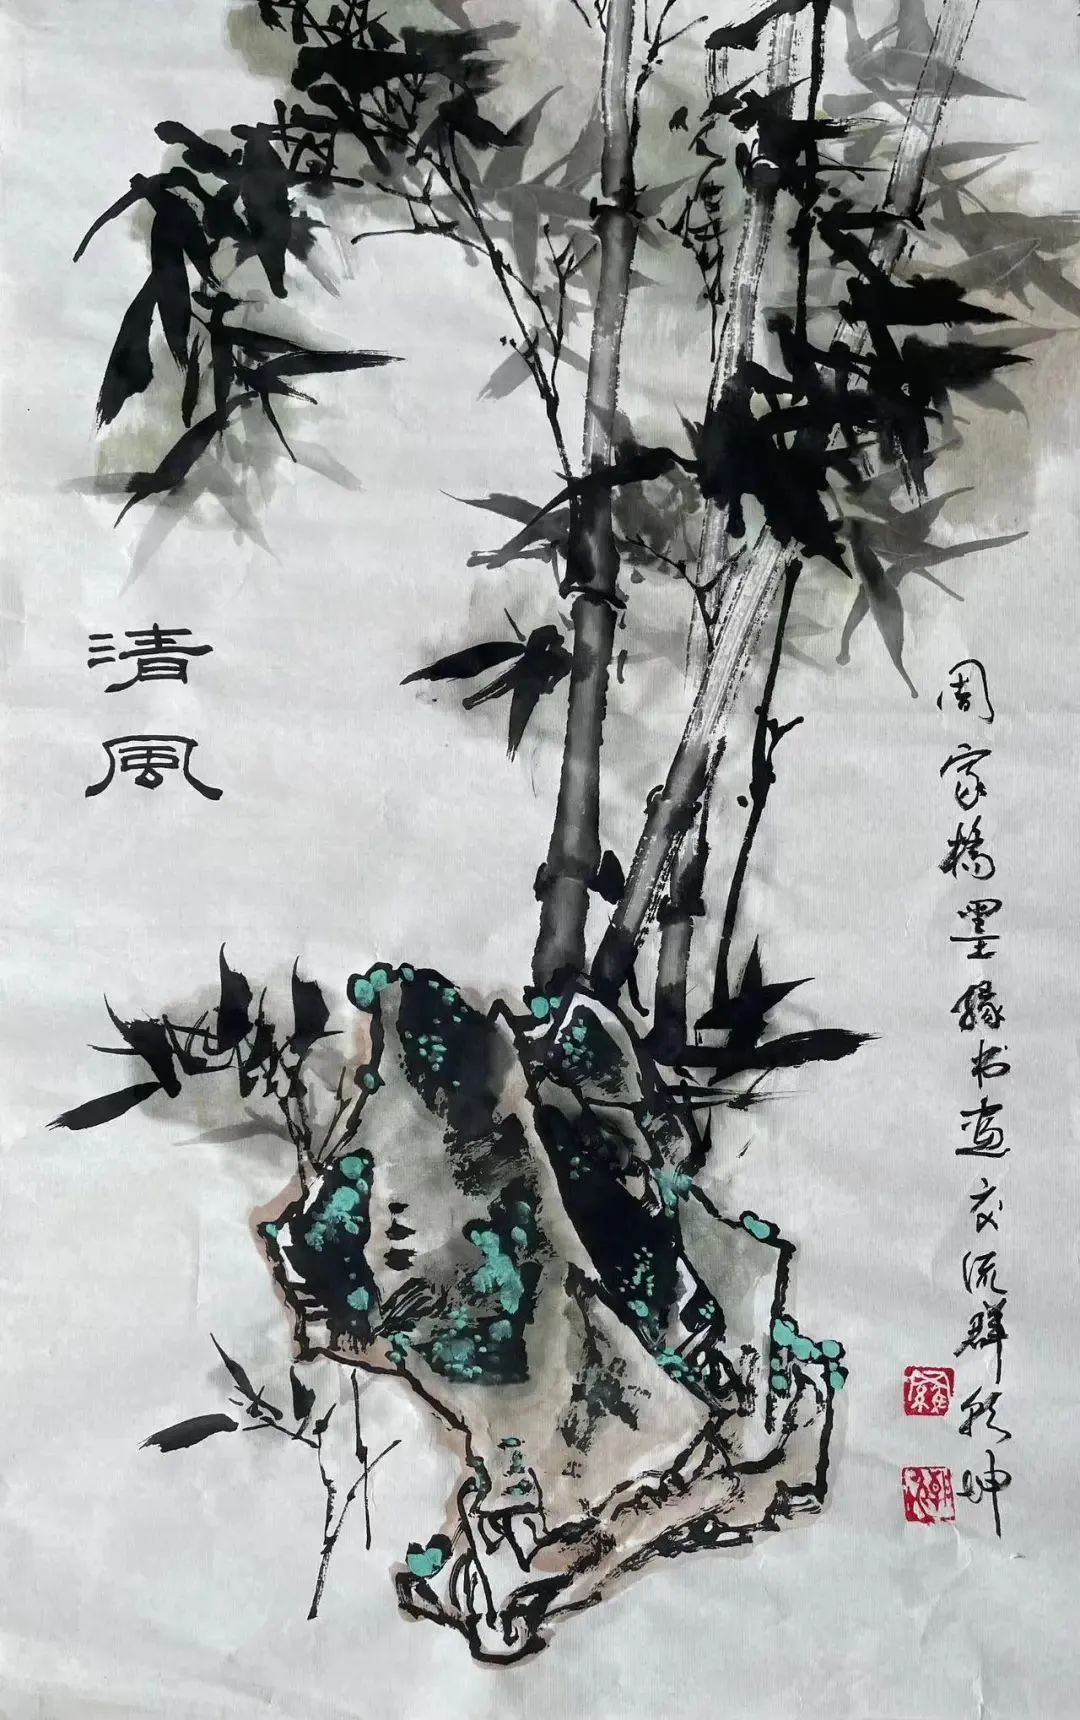 清風
周家橋墨緣书画交流群